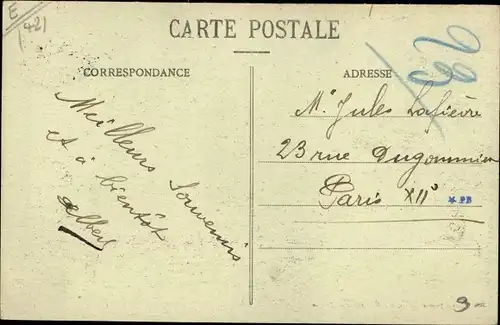 E
(42)
CARTE POSTALE
CORRESPONDANCE
Meilleurs Souvenirs
et à bientôt
Albert
ADRESSE
Mr Jules Lafièvre
23 rue Dugommier
Paris XIIe
* PB